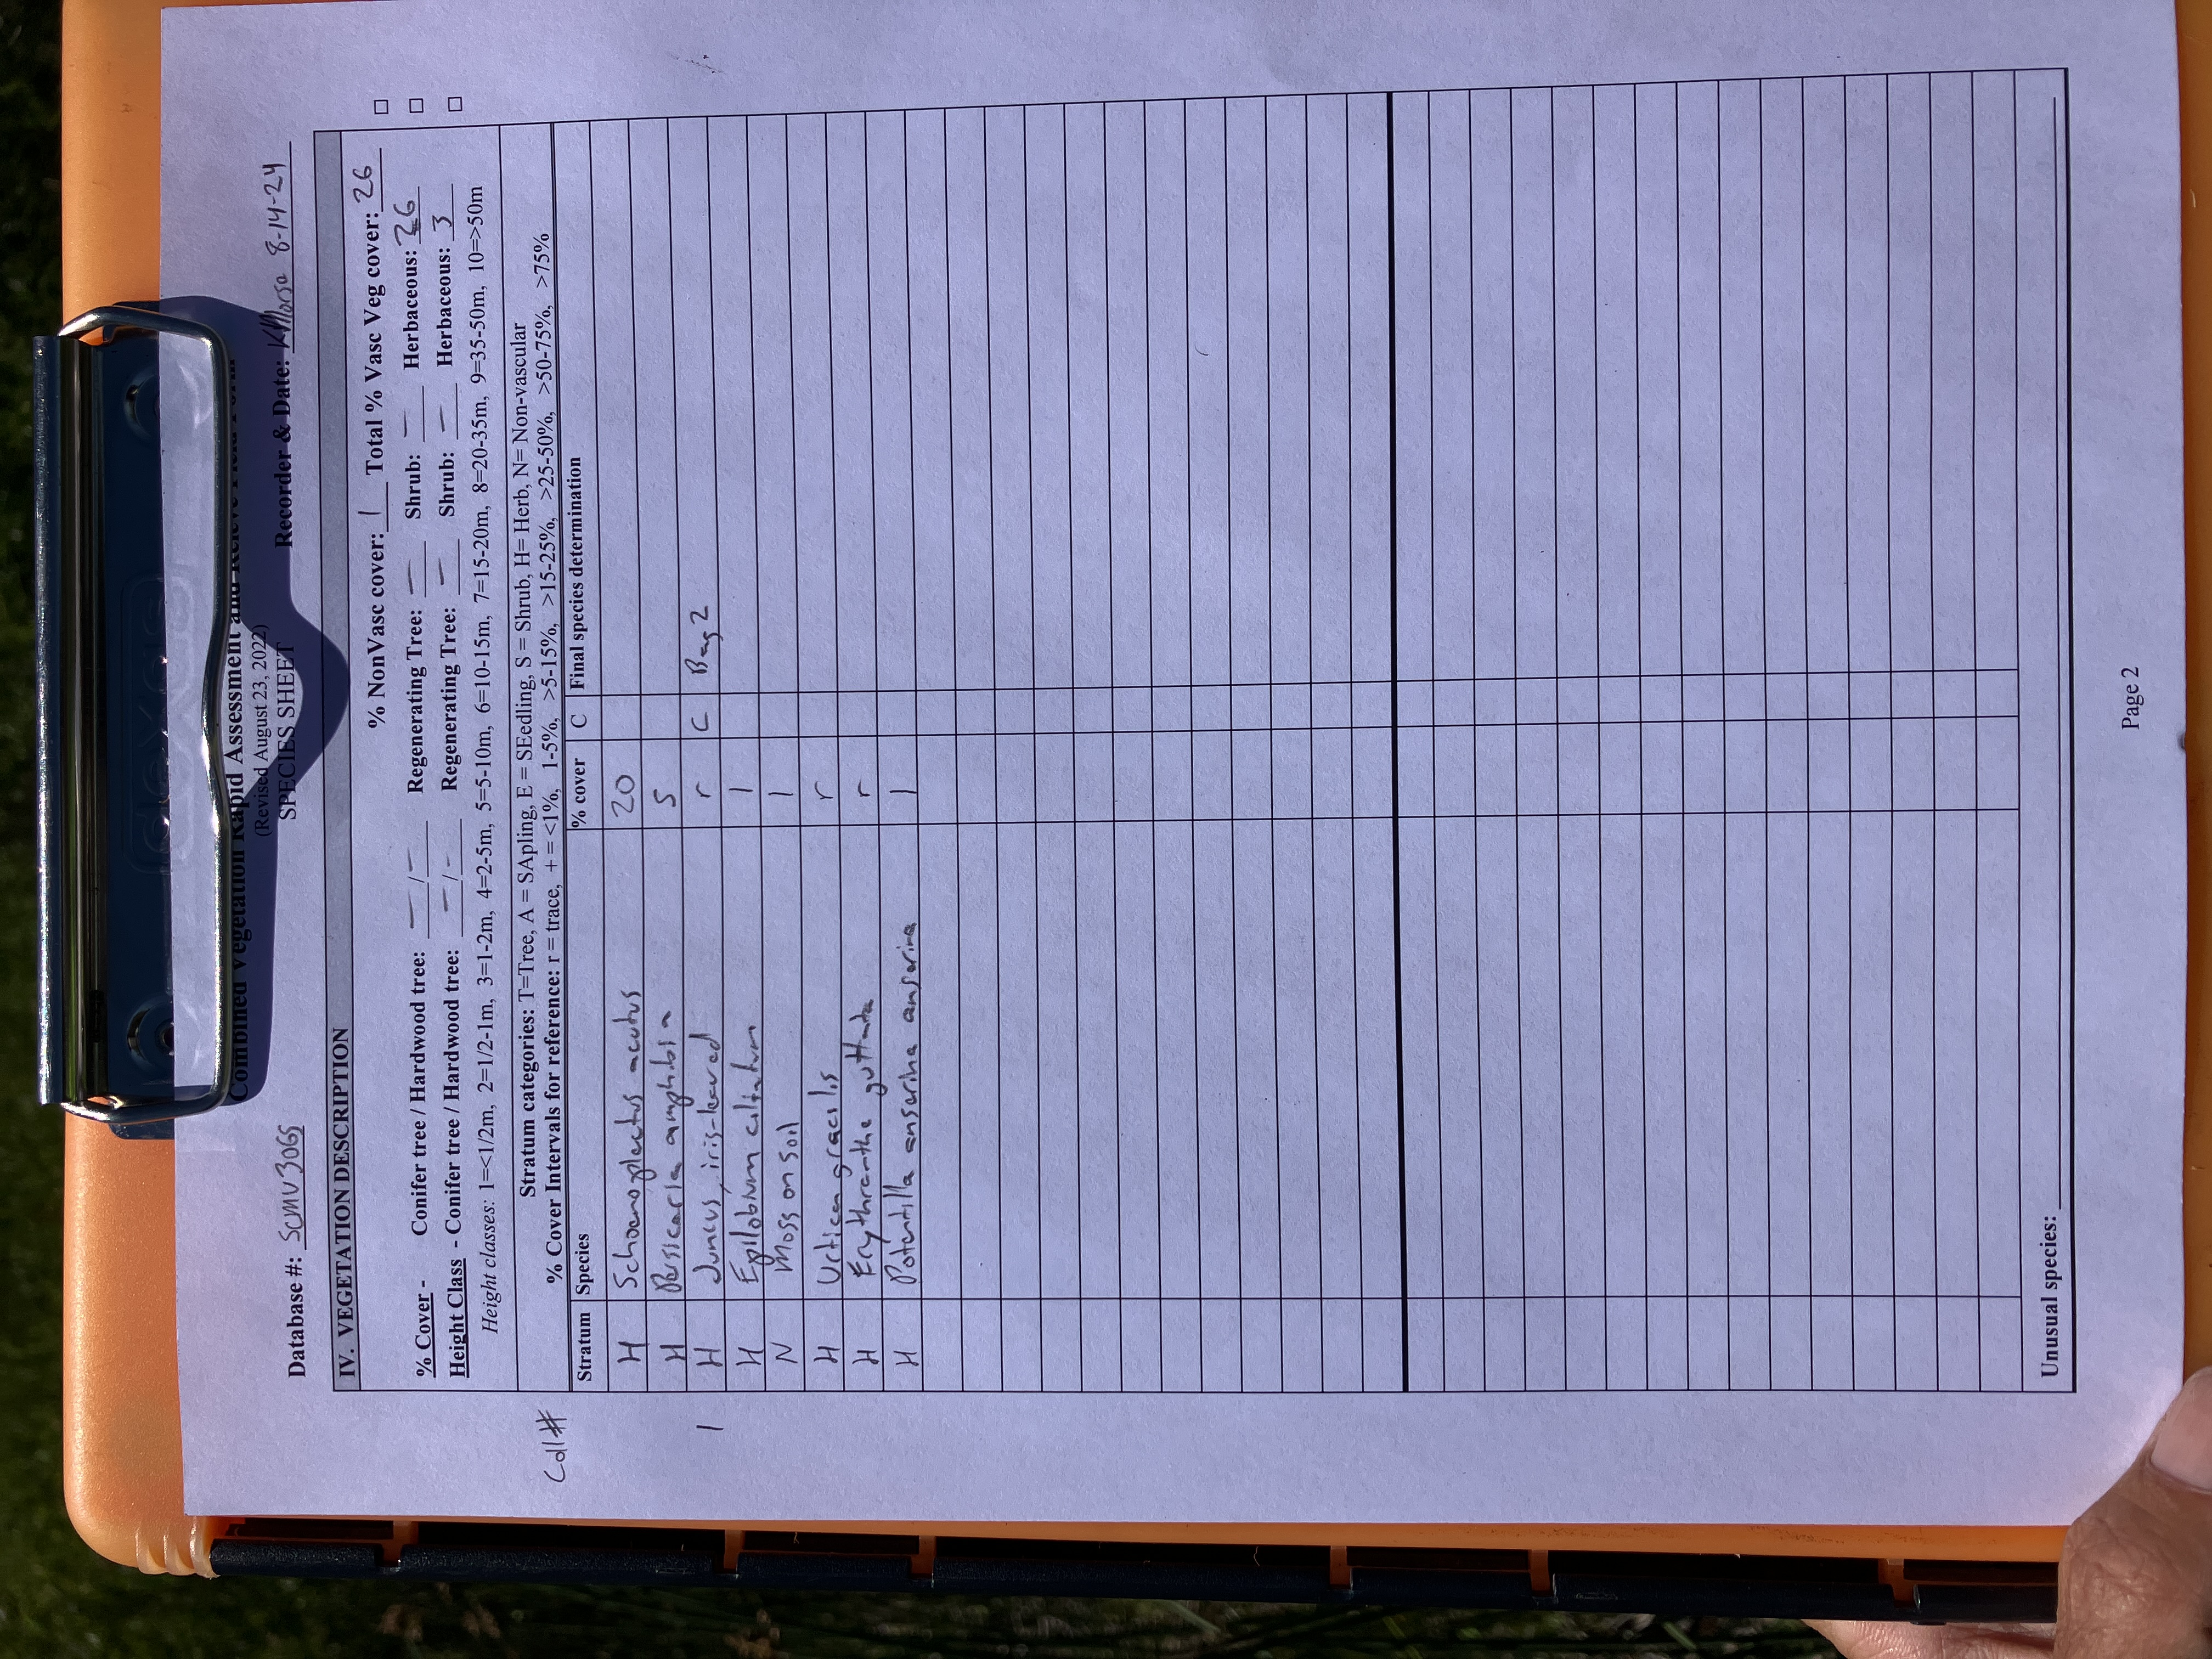 Combined Vegetation Rapid Assessment and Relevé Field Form
(Revised August 23, 2022)
SPECIES SHEET
Database #: SCMV3065 Recorder & Date: KMorse 8-14-24
IV. VEGETATION DESCRIPTION
% NonVasc cover: 1 Total % Vasc Veg cover: 26 □
% Cover - Conifer tree / Hardwood tree: - / - Regenerating Tree: - Shrub: - Herbaceous: 26 □
Height Class - Conifer tree / Hardwood tree: - / - Regenerating Tree: - Shrub: - Herbaceous: 3 □
Height classes: 1=<1/2m, 2=1/2-1m, 3=1-2m, 4=2-5m, 5=5-10m, 6=10-15m, 7=15-20m, 8=20-35m, 9=35-50m, 10=>50m
Stratum categories: T=Tree, A = SApling, E = SEedling, S = Shrub, H= Herb, N= Non-vascular
% Cover Intervals for reference: r = trace, + = <1%, 1-5%, >5-15%, >15-25%, >25-50%, >50-75%, >75%
Coll#
Stratum Species % cover C Final species determination
H Schoenoplectus acutus 20
H Persicaria amphibia 5
1 H Juncus, iris-leaved r C Bag 2
H Epilobium ciliatum 1
N Moss on soil 1
H Urtica gracilis r
H Erythranthe guttata r
H Potentilla anserina anserina 1
Unusual species:
Page 2